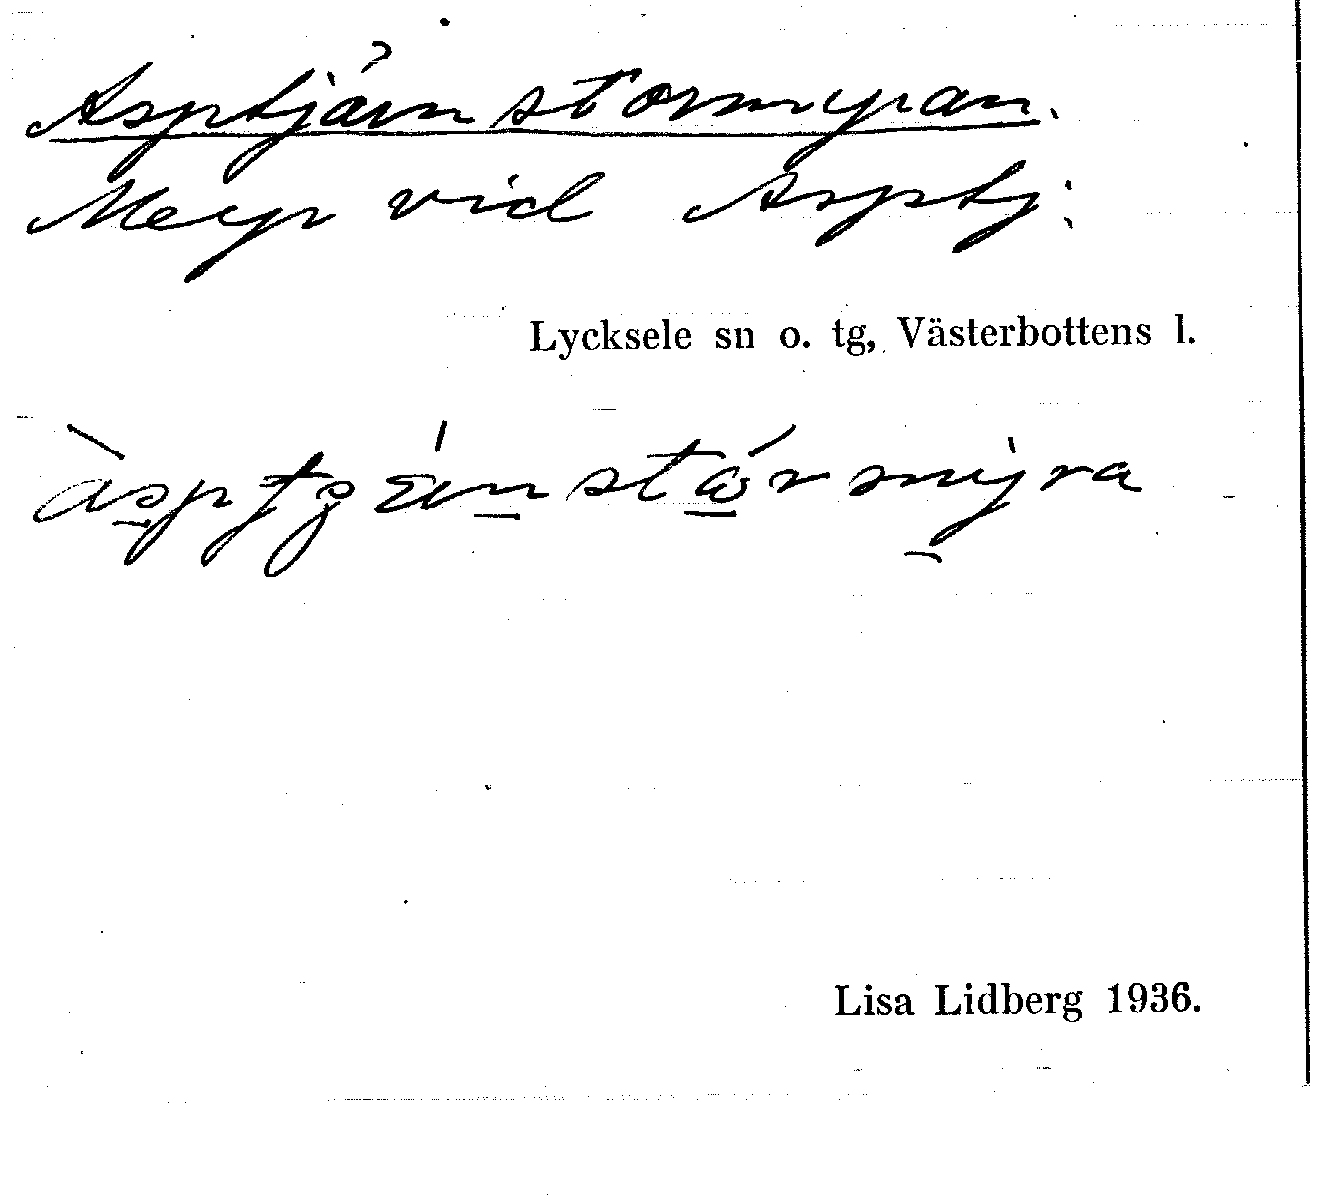 Asptjärnstormyran.
Myr vid Asptj:
Lycksele sn o. tg, Västerbottens l.
Lisa Lidberg 1936.